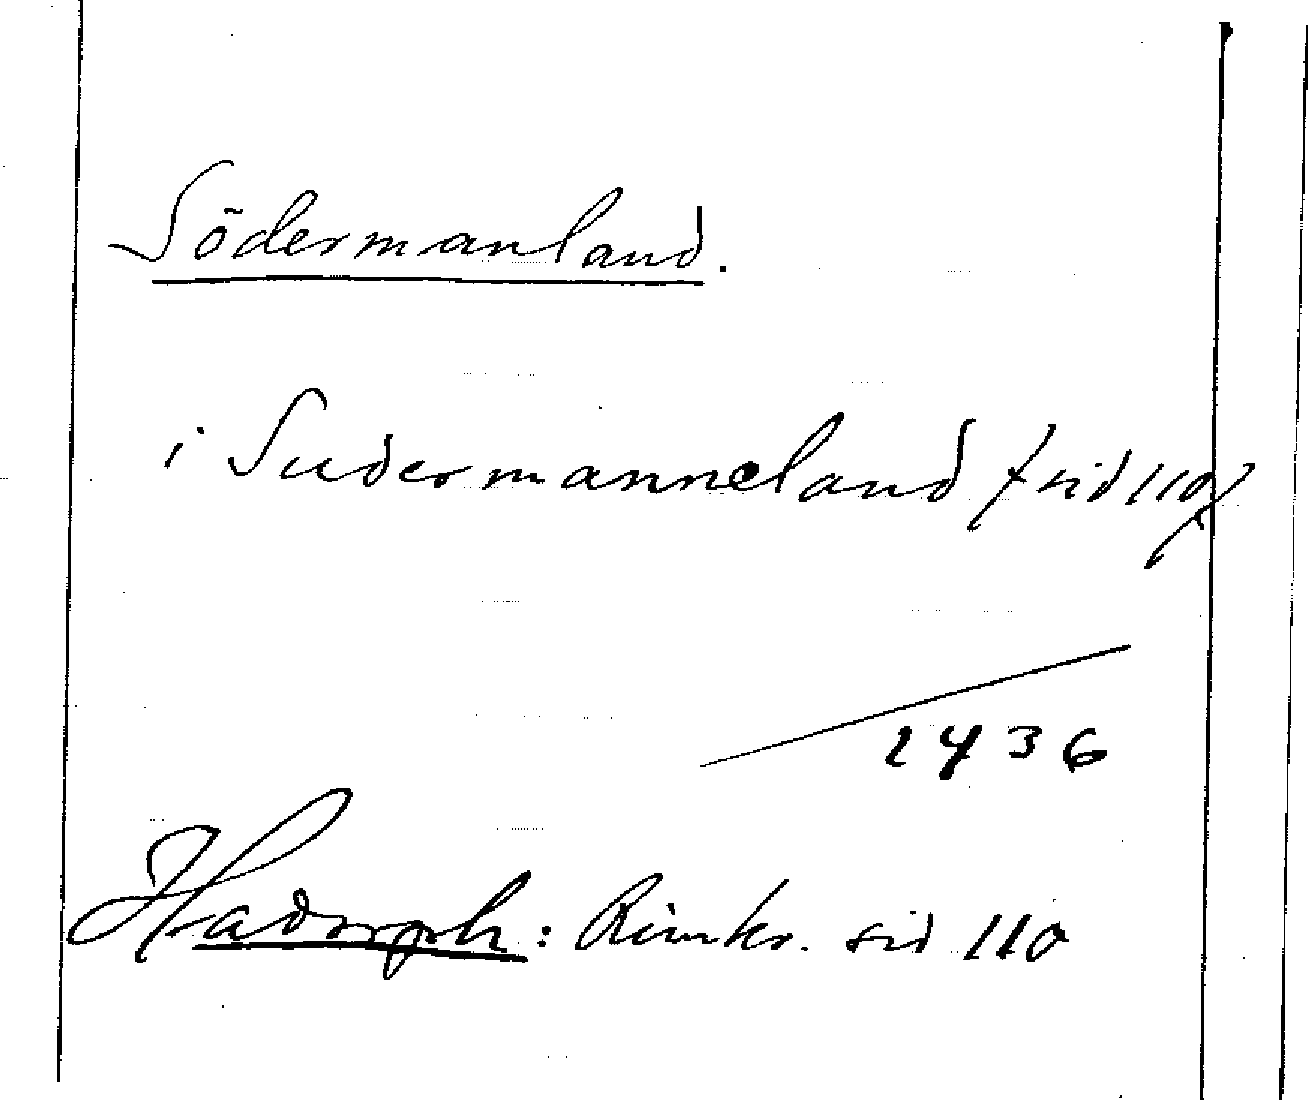 Södermanland.
i Sudermanneland (sid 110)
1436
Hadorph: Rimkr. sid 110